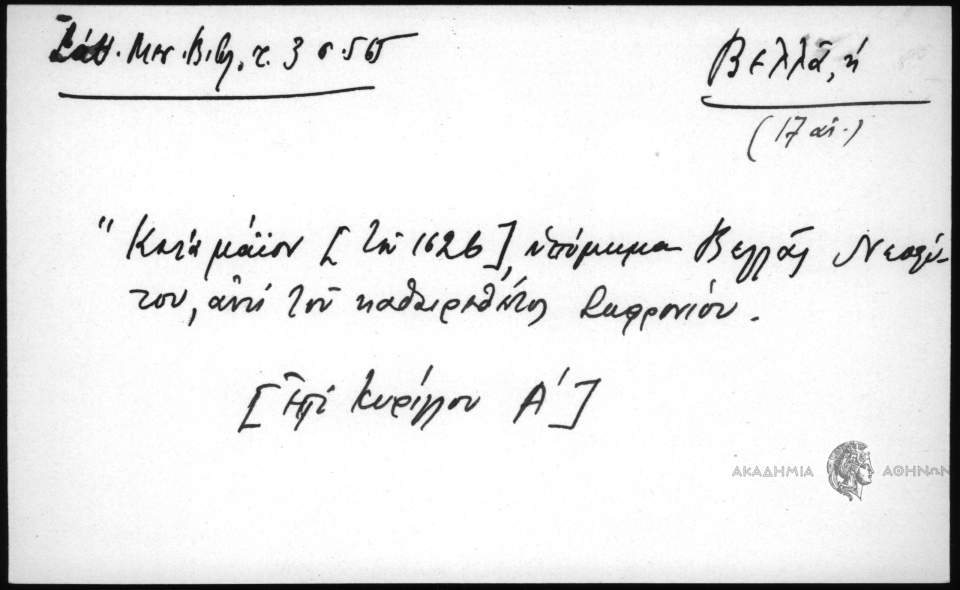 Σάθ. Μεσ. Βιβλ. τ. 3 σ. 565
Βελλᾶ, ἡ
(17 αἰ.)
" Κατά μάϊον [τοῦ 1626], ὑπόμνημα Βελλᾶς Νεοφύ-
του, ἀντί τοῦ καθαιρεθέντος Σωφρονίου.
[Ἐπί Κυρίλλου Α']
ΑΚΑΔΗΜΙΑ ΑΘΗΝΩΝ